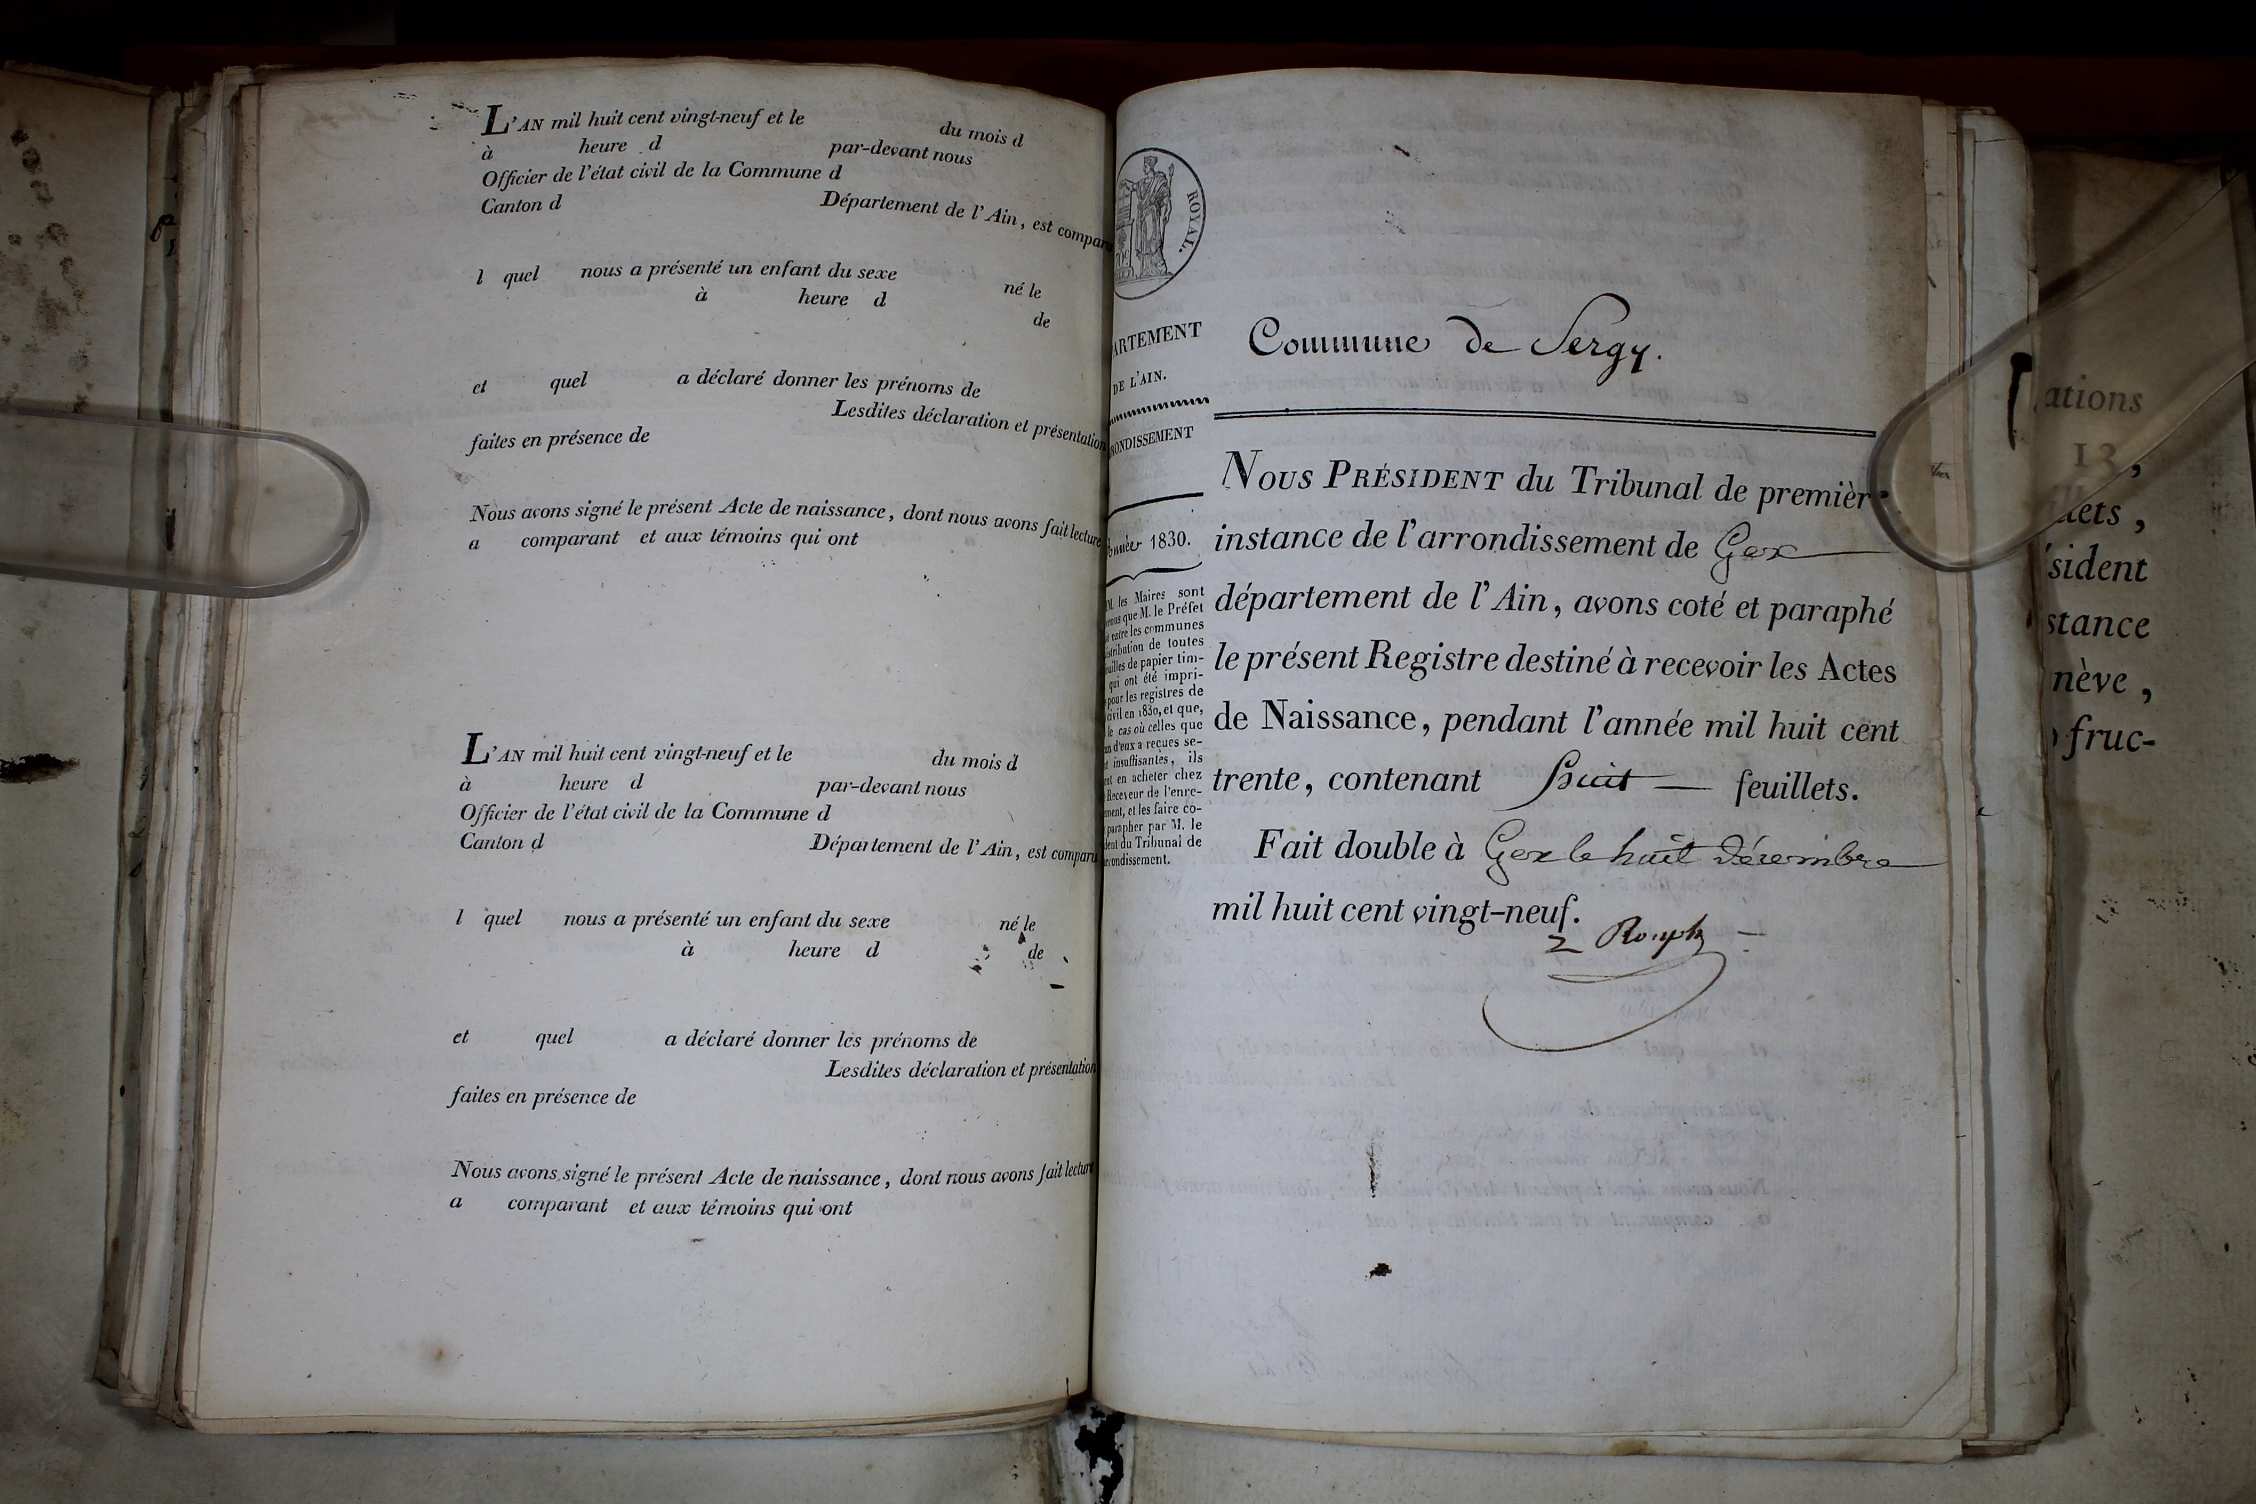 L'AN mil huit cent vingt-neuf et le du mois d
à heure d par-devant nous
Officier de l'état civil de la Commune d
Canton d Département de l'Ain, est comparu
l quel nous a présenté un enfant du sexe né le
à heure d de
et quel a déclaré donner les prénoms de
Lesdites déclaration et présentation
faites en présence de
Nous avons signé le présent Acte de naissance, dont nous avons fait lecture
a comparant et aux témoins qui ont
L'AN mil huit cent vingt-neuf et le du mois d
à heure d par-devant nous
Officier de l'état civil de la Commune d
Canton d Département de l'Ain, est comparu
l quel nous a présenté un enfant du sexe né le
à heure d de
et quel a déclaré donner les prénoms de
Lesdites déclaration et présentation
faites en présence de
Nous avons signé le présent Acte de naissance, dont nous avons fait lecture
a comparant et aux témoins qui ont
ROYAL.
ARTEMENT
DE L'AIN.
RONDISSEMENT
1830.
M. les Maires sont
que M. le Préfet
entre les communes
stribution de toutes
uilles de papier tim-
qui ont été impri-
pour les registres de
civil en 1830, et que,
le cas où celles que
un d'eux a reçues se-
insuffisantes, ils
en acheter chez
Receveur de l'enre-
ment, et les faire co-
parapher par M. le
dent du Tribunal de
rondissement.
Commune de Sergy.
NOUS PRÉSIDENT du Tribunal de premièr
instance de l'arrondissement de Gex
département de l'Ain, avons coté et paraphé
le présent Registre destiné à recevoir les Actes
de Naissance, pendant l'année mil huit cent
trente, contenant huit feuillets.
Fait double à Gex le huit décembre
mil huit cent vingt-neuf.
ations
13,
llets,
sident
stance
nève,
fruc-